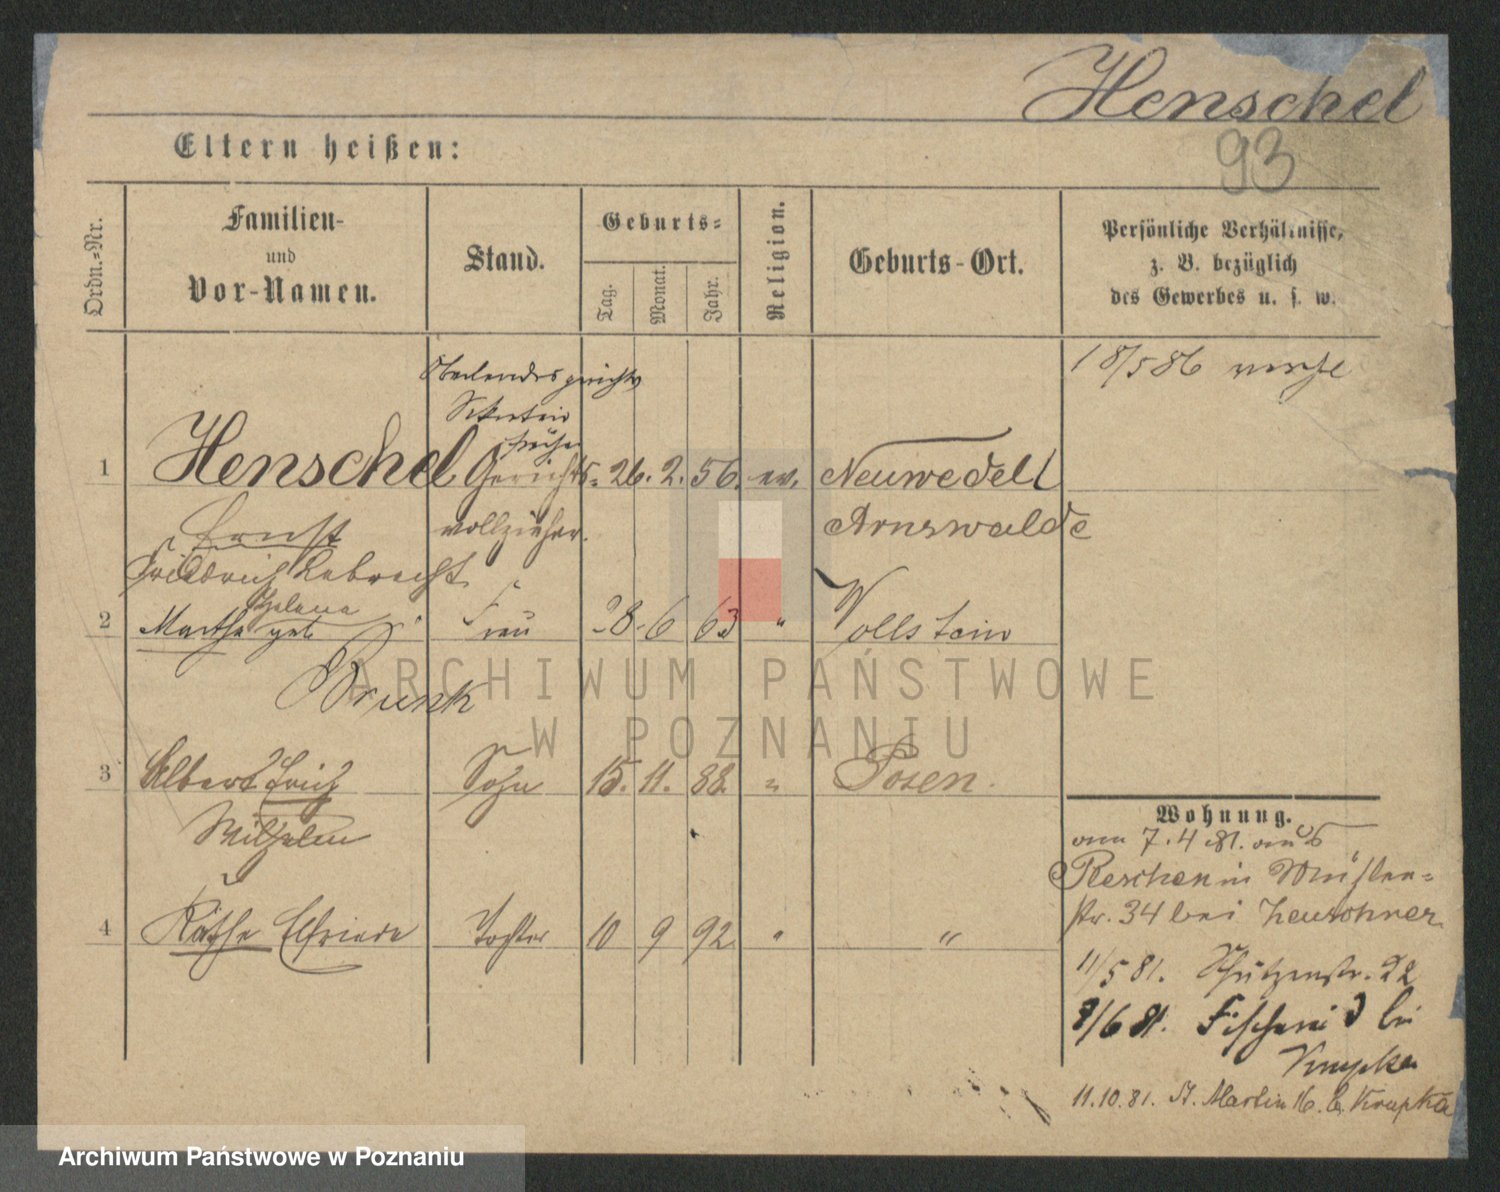 Henschel
93
Eltern heißen:
Ordn.-Nr.
Familien-
und
Vor-Namen.
Stand.
Geburts-
Tag.
Monat.
Jahr.
Religion.
Geburts-Ort.
Persönliche Verhältnisse,
z. B. bezüglich
des Gewerbes u. s. w.
18/5 86
Oberlandesgerichts
Sekretair
früher
1 Henschel Gerichts- 26. 2. 56. ev. Neuwedell
Ernst vollzieher. Arnswalde
Friedrich Lebrecht
Helene
2 Martha geb. Frau 28. 6 63 " Wollstein
Brunk
3 Albert Erich Sohn 15. 11. 88. " Posen.
Wilhelm
4 Käthe Elfriede Tochter 10 9 92 " "
Wohnung.
vom 7. 4. 81. aus
Reschen in Mühlen-
str. 34 bei
11/5 81. Schützenstr. 22
8/6 81. Fischerei 3 bei
Krupka
11.10.81. St. Martin 16. b. Krupka
ARCHIWUM PAŃSTWOWE
W POZNANIU
Archiwum Państwowe w Poznaniu